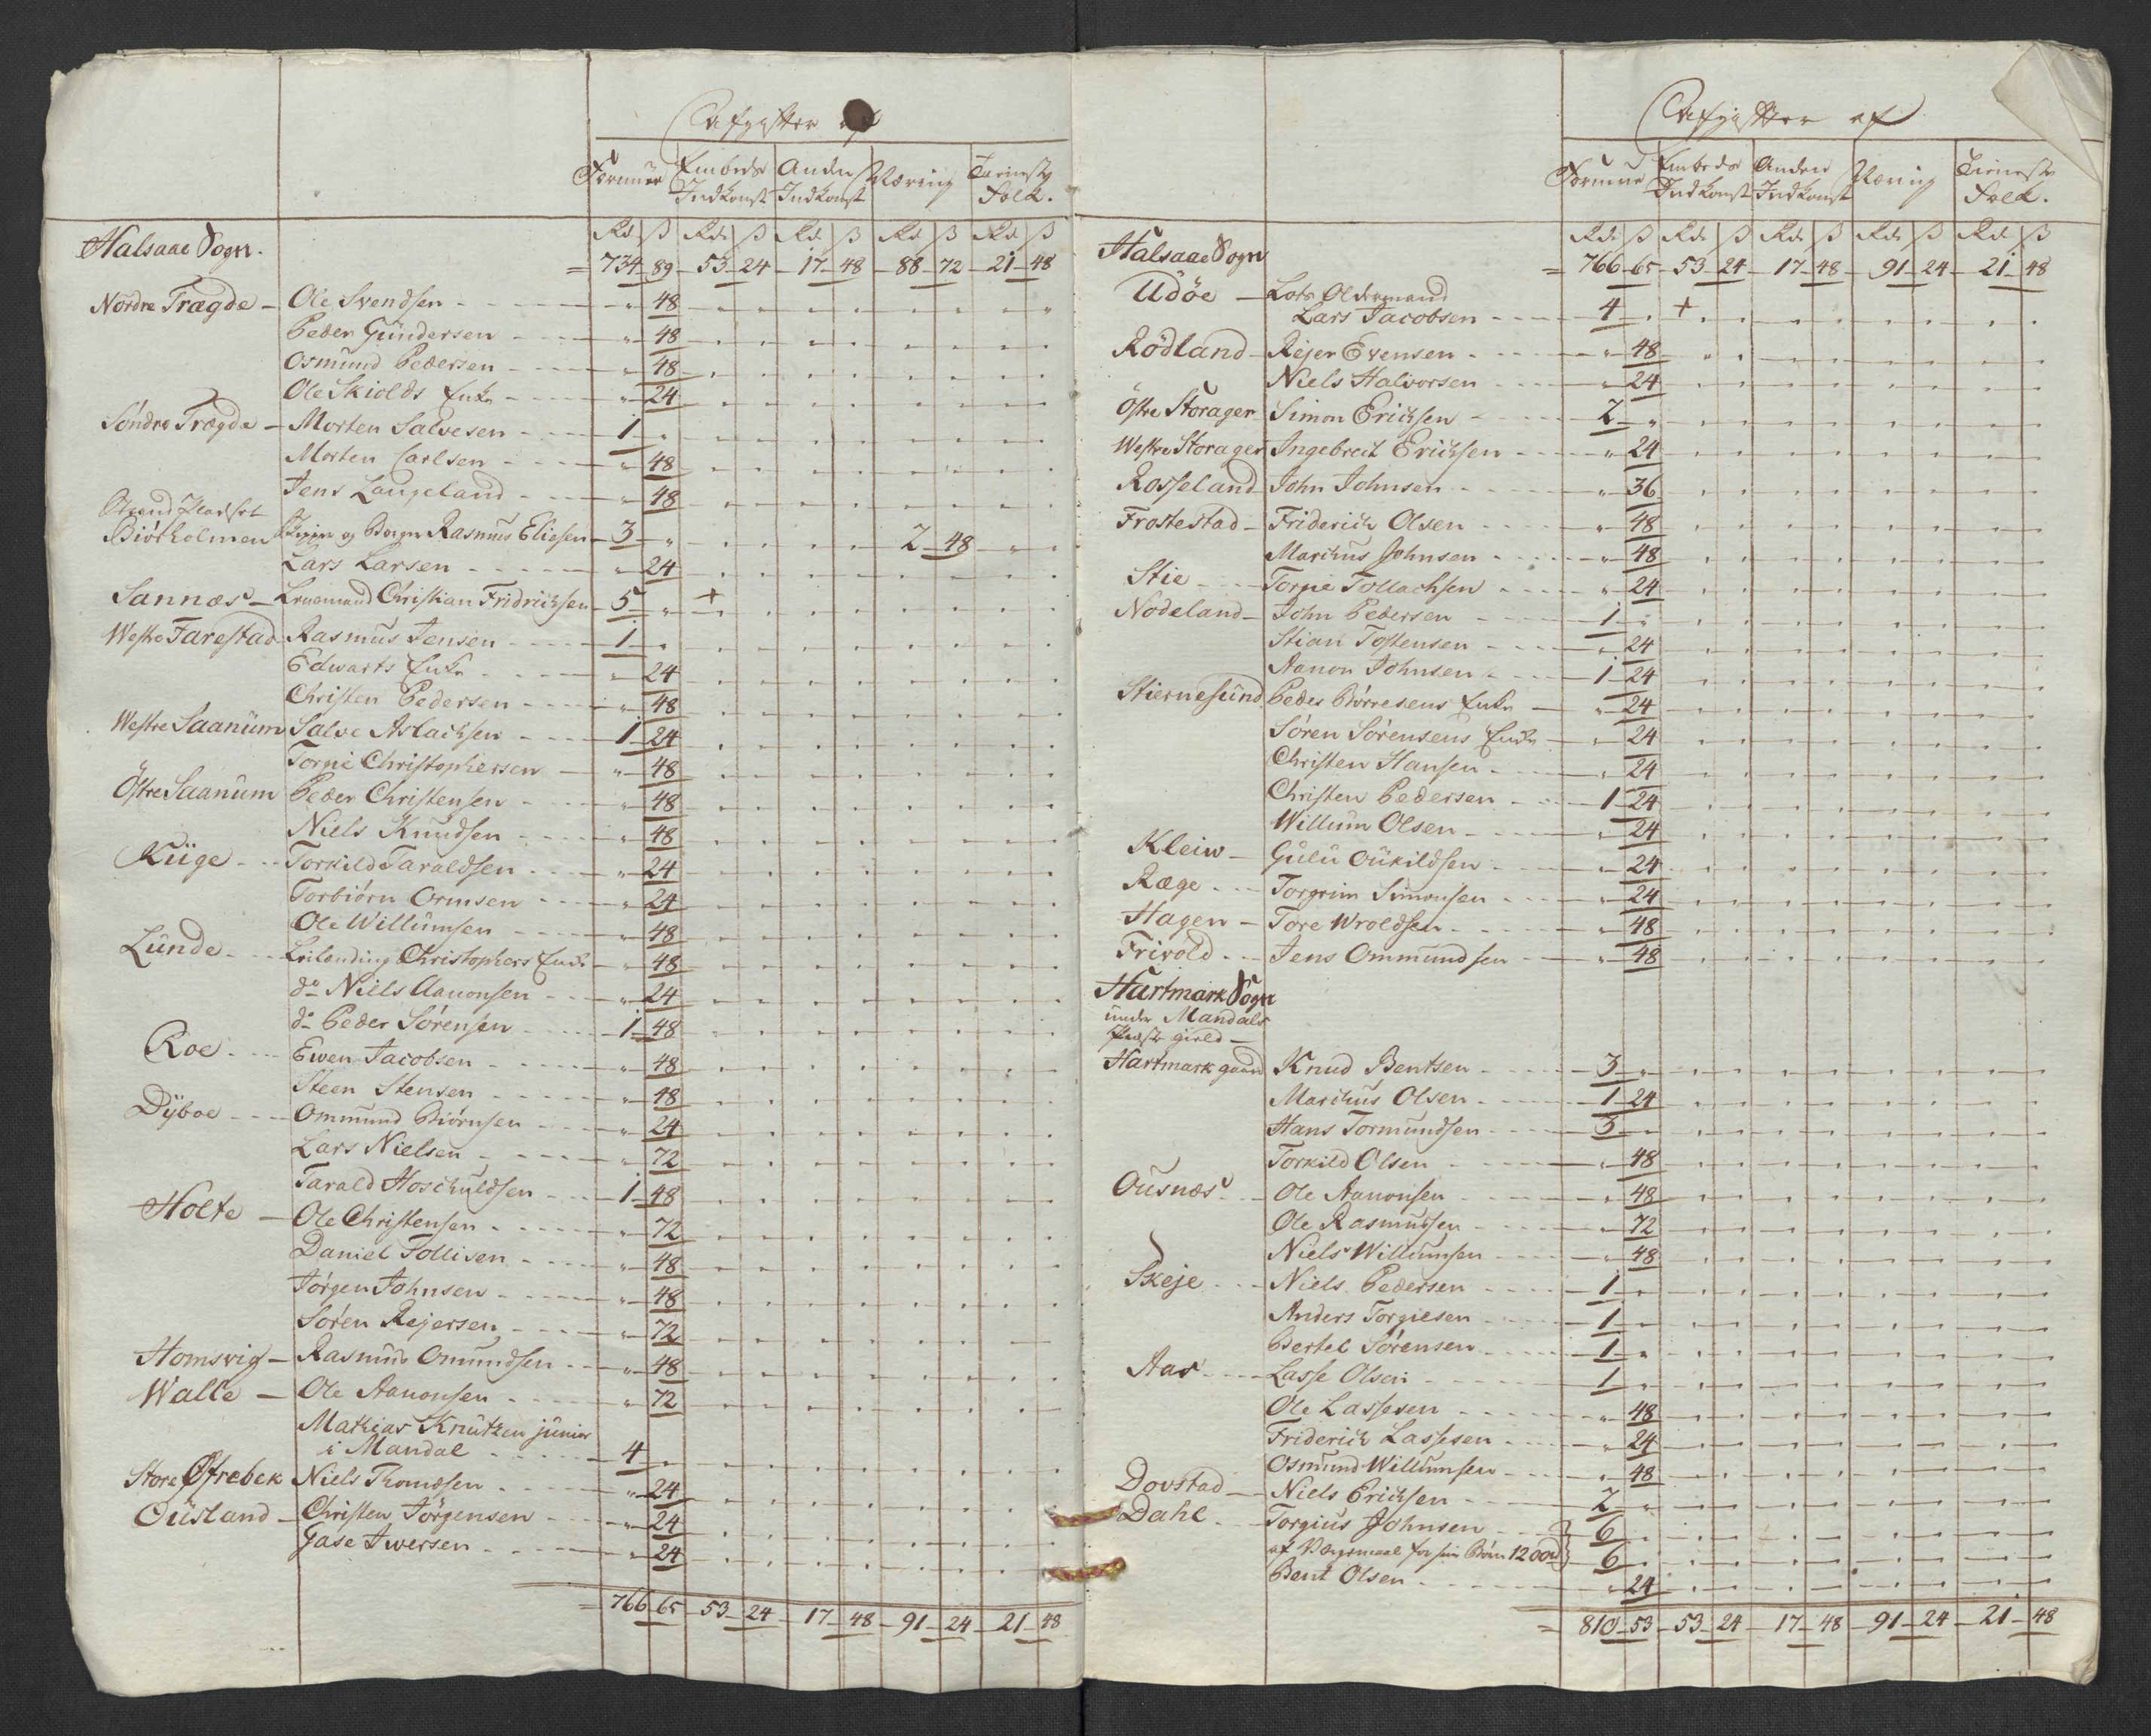 Afgifter af
Formue Embeds Indkomst Anden Indkomst Næring Tieniste Folk.
Rd ß Rd ß Rd ß Rd ß Rd ß
Halsaae Sogn. = 734 89 53 24 17 48 88 72 21 48
Nordre Trægde Ole Svendsen " 48
Peder Gundersen " 48
Osmund Pedersen " 48
Ole Skiolds Enke " 24
Søndre Trægde Morten Salvesen 1 "
Morten Carlsen " 48
Jens Langeland " 48
Strand Pladset
Biörholmen Skipper og Borger Rasmus Eliesen 3 " 2 48
Lars Larsen " 24
Sannæs Christian Fridrichsen 5 " +
Westre Farestad Rasmus Jensen 1 "
Edwarts Enke " 24
Christen Pedersen " 48
Westre Saanum Salve Aslachsen 1 24
Torgie Christophersen " 48
Östre Saanum Peder Christensen " 48
Niels Knudsen " 48
Küge Torkild Taraldsen " 24
Torbiörn Ormsen " 24
Ole Willumsen " 48
Lunde Leilending Christophers Enke " 48
do Niels Aanonsen " 24
do Peder Sörensen 1 48
Roe Ewen Jacobsen " 48
Steen Stensen " 48
Dÿboe Ommund Biörnsen " 24
Lars Nielsen " 72
Tarald Hoschuldsen 1 48
Holte Ole Christensen " 72
Daniel Tollisen " 48
Jörgen Johnsen " 48
Sören Rejersen " 72
Homsvig Rasmus Omundsen " 48
Walle Ole Aanonsen " 72
Mathias Knutzen junior
i Mandal 4 "
Store Øfrebek Niels Thomæsen " 24
Ousland Christen Jörgensen " 24
Gase Iwersen " 24
= 766 65 53 24 17 48 91 24 21 48
Afgifter af
Formue Embeds Indkomst Anden Indkomst Næring Tieniste Folk.
Rd ß Rd ß Rd ß Rd ß Rd ß
Halsaae Sogn = 766 65 53 24 17 48 91 24 21 48
Udöe Lots Oldermand
Lars Jacobsen 4 " +
Rödland Rejer Evensen " 48
Niels Halvorsen " 24
Östre Storager Simon Erichsen 2 "
Westre Storager Ingebret Erichsen " 24
Rosseland John Johnsen " 36
Frostestad Friderich Olsen " 48
Marchus Johnsen " 48
Stie Torgie Tollachsen " 24
Nodeland John Pedersen 1 "
Stian Tostensen " 24
Aanon Johnsen 1 24
Stiernesund Peder Börresens Enke " 24
Sören Sörensens Enke " 24
Christen Hansen " 24
Christen Pedersen 1 24
Willum Olsen " 24
Kleiw Gulu Oukildsen " 24
Ræge Torgrim Simonsen " 24
Hagen Tore Wroldsen " 48
Frivold Jens Ommundsen " 48
Hartmark Sogn
under Mandals
Præste gield
Hartmark gaard Knud Bentsen 3 "
Marchus Olsen 1 24
Hans Tormundsen 3 "
Torkild Olsen " 48
Ousnæs Ole Aanonsen " 48
Ole Rasmussen " 72
Niels Willumsen " 48
Skeje Niels Pedersen 1 "
Anders Torgiesen 1 "
Bertel Sörensen 1 "
Aas Lasse Olsen 1 "
Ole Lassesen " 48
Friderich Lassesen " 24
Osmund Willumsen " 48
Dovstad Niels Erichsen 2 "
Dahl Torgius Johnsen 6 "
af Værgemaal for sin Börn 1200 rd 6 "
Bent Olsen " 24
= 810 53 53 24 17 48 91 24 21 48